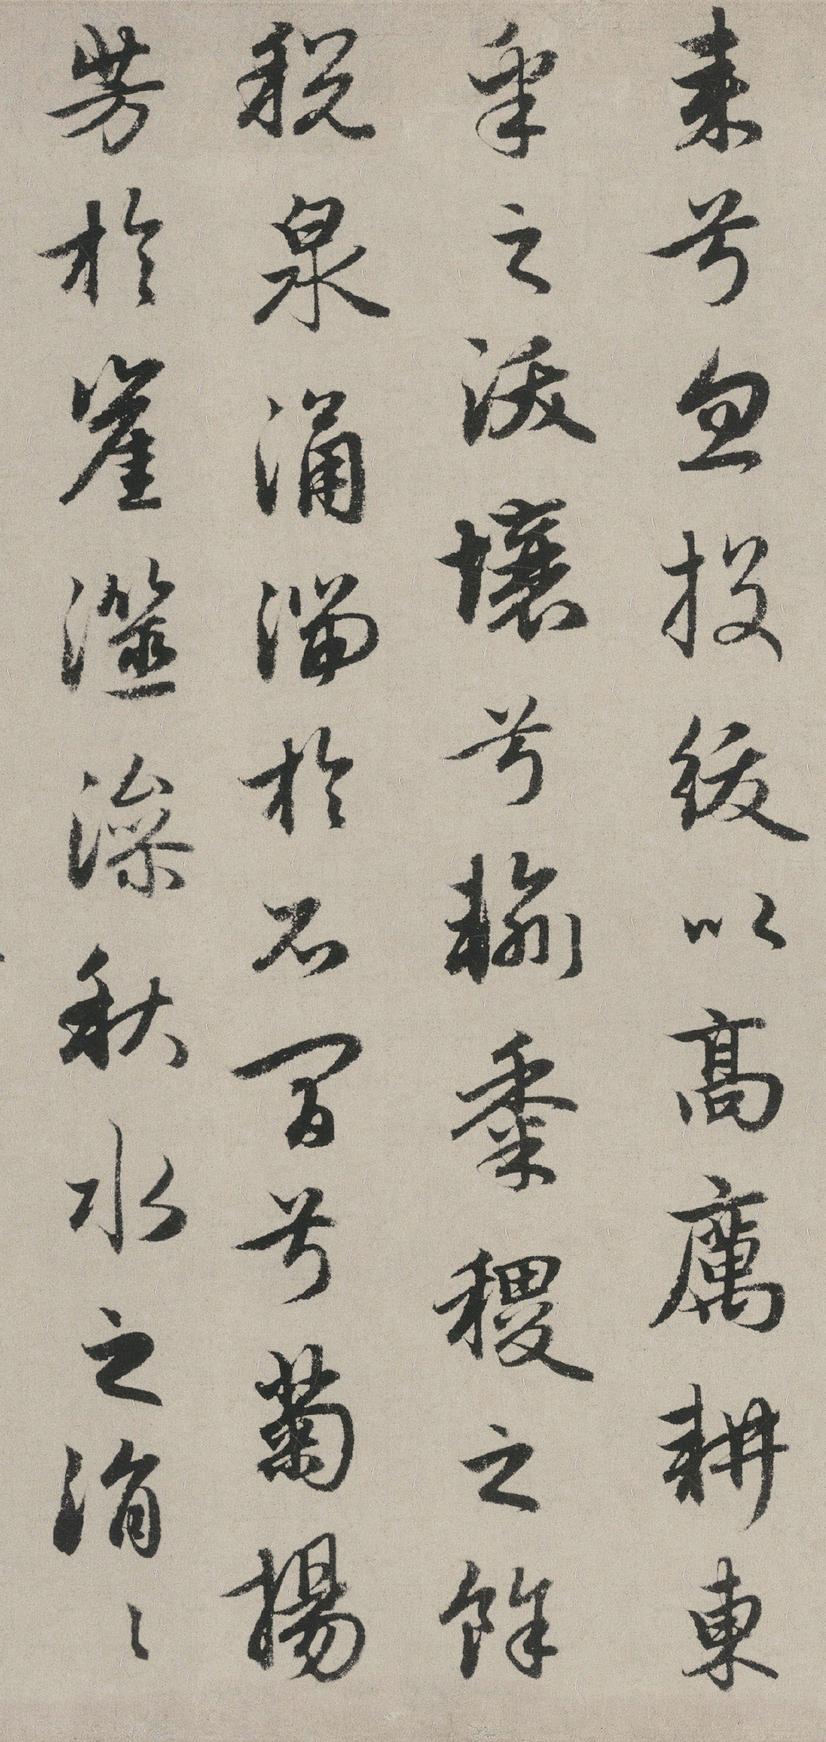 来兮忽投绂以高厲耕東
皋之沃壤兮輸黍稷之餘
税泉涌溜於石間兮菊揚
芳於崖澨澡秋水之涓〻